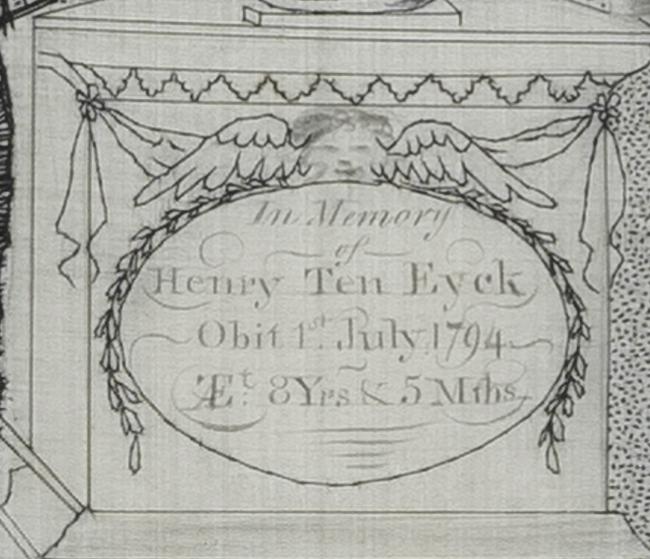 In Memory
of
Henry Ten Eyck
Obit 1st. July. 1794
Æt: 8Yrs & 5Mths